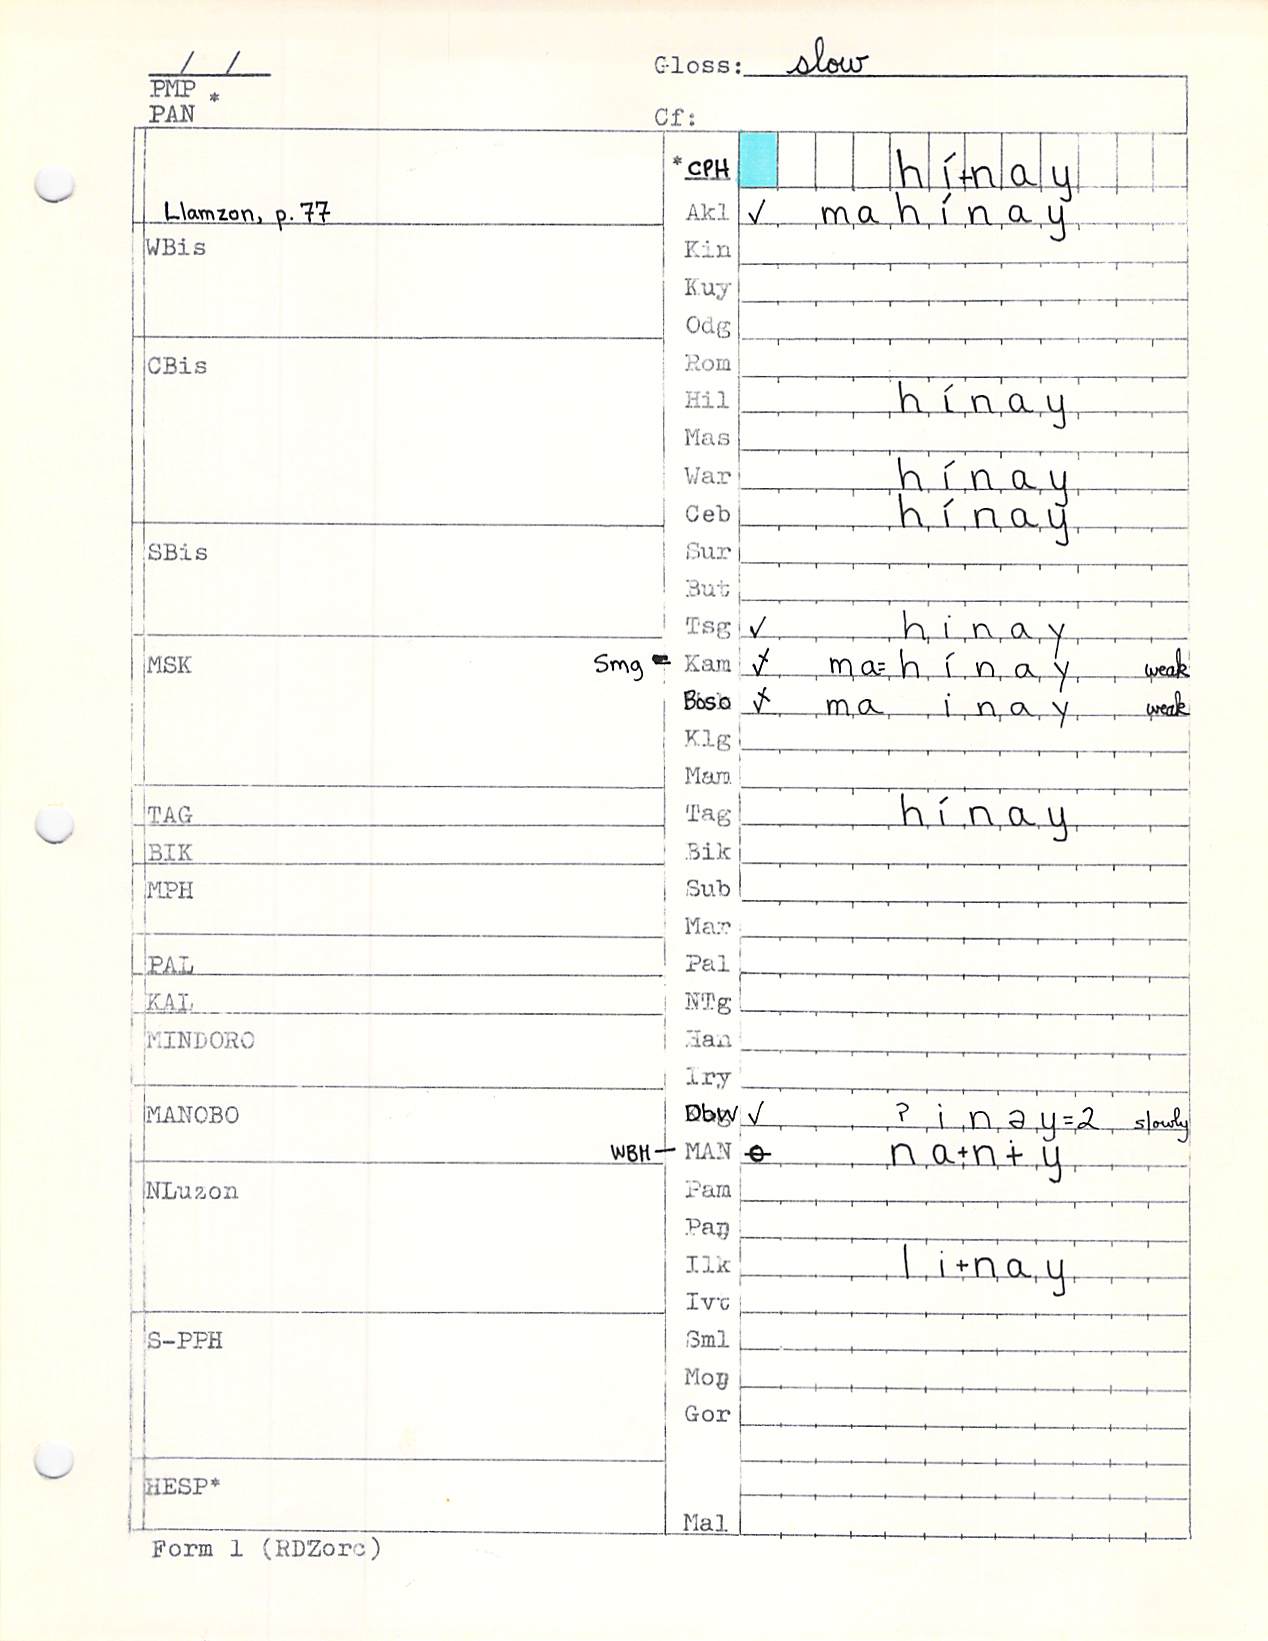 / /
Gloss: slow
PMP *
PAN
Cf:
*CPH hí+nay
Llamzon, p. 77
Akl ✓ mahínay
WBis
Kin
Kuy
Odg
CBis
Rom
Hil hínay
Mas
War hínay
Ceb hínay
SBis
Sur
But
Tsg ✓ hinay
MSK
Smg - Kam ma=hínay weak
Boso ma inay weak
Klg
Mam
TAG
Tag hínay
BIK
Bik
MPH
Sub
Mar
PAL
Pal
KAL
NTg
MINDORO
Han
Iry
MANOBO
DbW ✓ ʔinəy=2 slowly
WBM — MAN na+nɨy
NLuzon
Pam
Paŋ
Ilk li+nay
Ivt
S-PPH
Sml
Moŋ
Gor
HESP*
Mal
Form 1 (RDZorc)